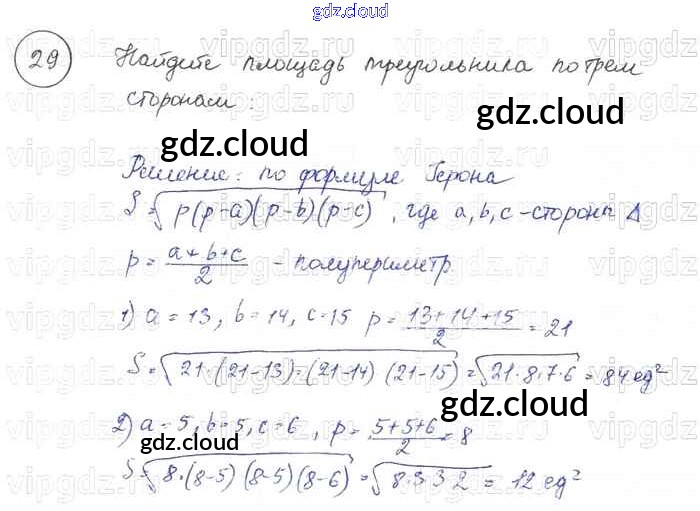 gdz.cloud
29 Найдите площадь треугольника по трем
сторонам:
gdz.cloud
gdz.cloud
Решение: по формуле Герона
S=√p(p-a)(p-b)(p-c), где a,b,c-сторон Δ
p=a+b+c/2 - полупериметр
1) a=13, b=14, c=15 p=13+14+15/2=21
S=√21·(21-13)·(21-14)(21-15)=√21·8·7·6=84ед²
gdz.cloud
2) a=5, b=5, c=6, p=5+5+6/2=8
gdz.cloud
S=√8·(8-5)(8-5)(8-6)=√8·3·3·2=12ед²
gdz.cloud
vipgdz.ru